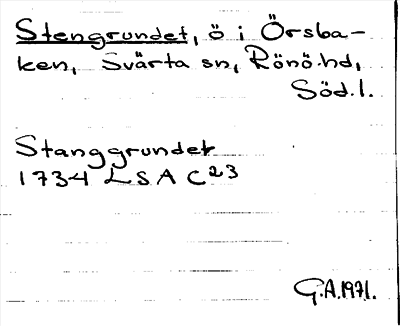 Stengrundet, ö i Örsba-
ken, Svärta sn, Rönö.hd,
Söd.l.
Stanggrundet
1734 LSA C23
G.A.1971.